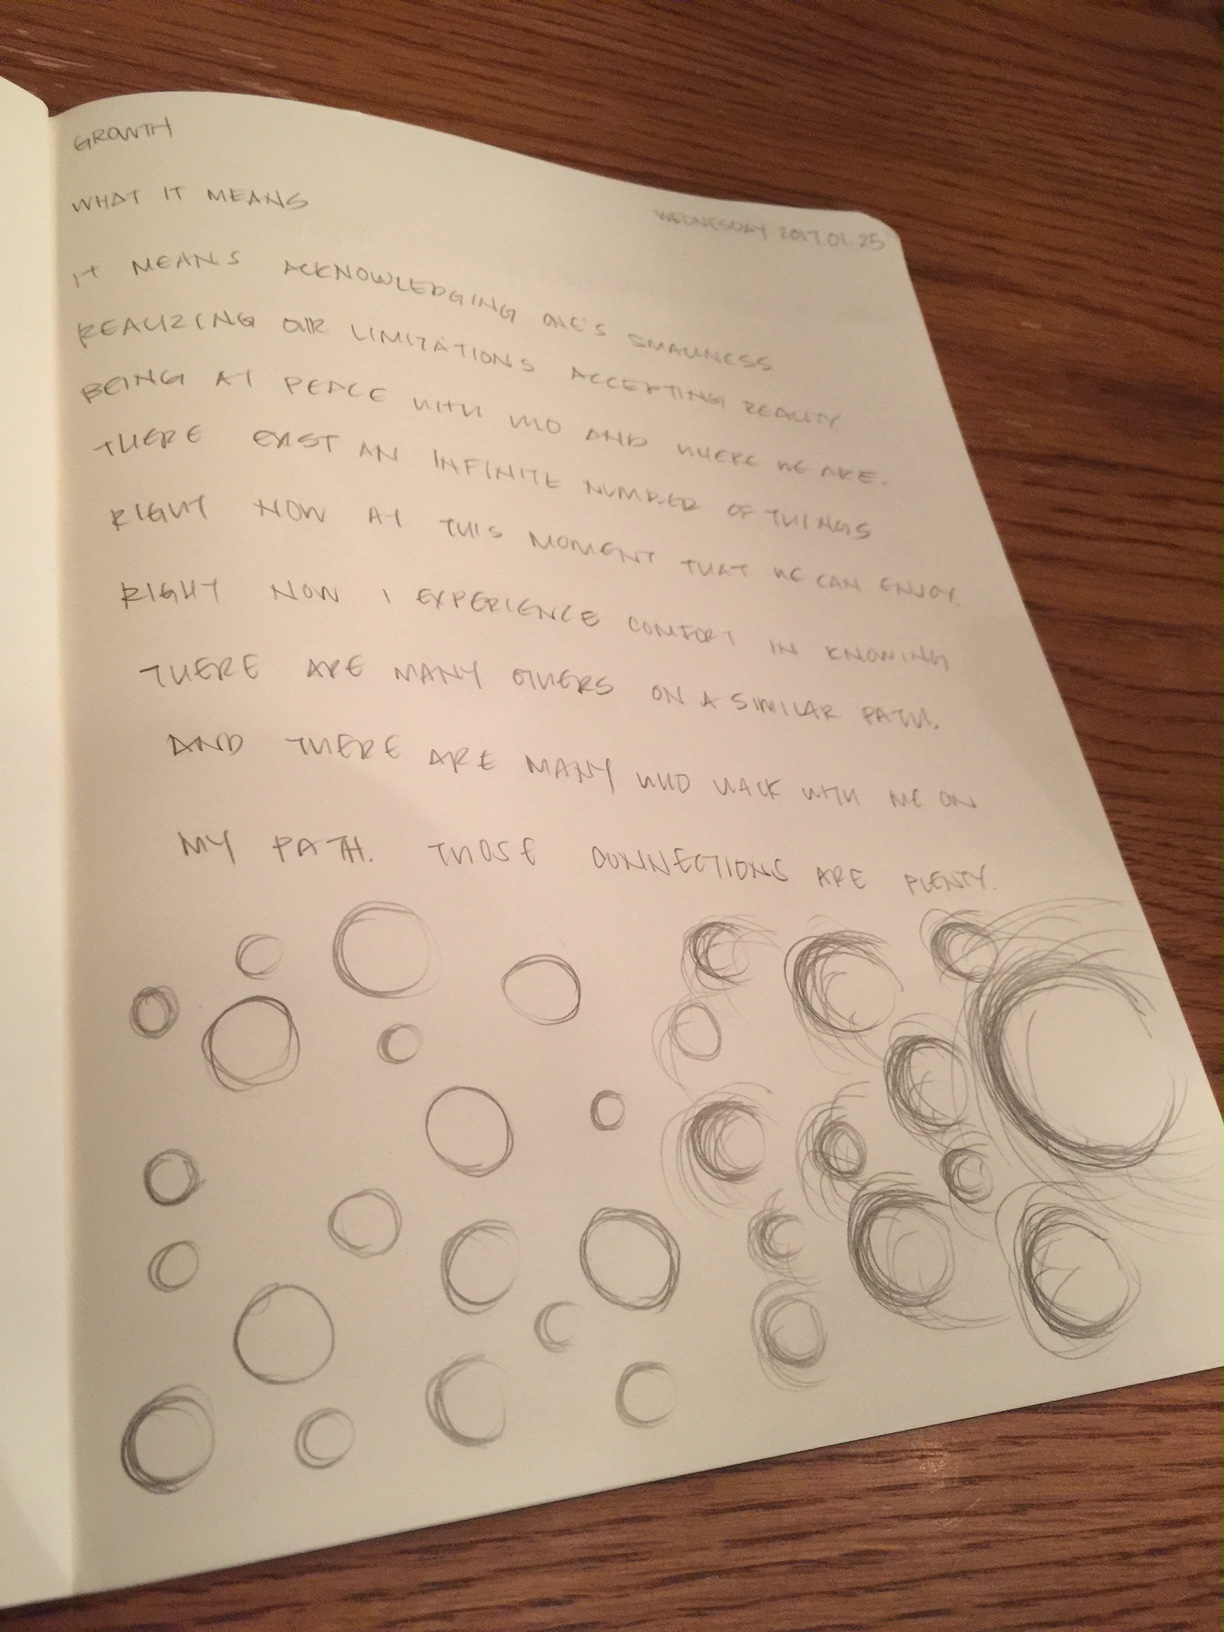 GROWTH
WHAT IT MEANS
WEDNESDAY 2017.01.25
IT MEANS ACKNOWLEDGING ONE'S SMALLNESS
REALIZING OUR LIMITATIONS ACCEPTING REALITY
BEING AT PEACE WITH WHO AND WHERE WE ARE.
THERE EXIST AN INFINITE NUMBER OF THINGS
RIGHT NOW AT THIS MOMENT THAT WE CAN ENJOY.
RIGHT NOW I EXPERIENCE COMFORT IN KNOWING
THERE ARE MANY OTHERS ON A SIMILAR PATH.
AND THERE ARE MANY WHO WALK WITH ME ON
MY PATH. THOSE CONNECTIONS ARE PLENTY.